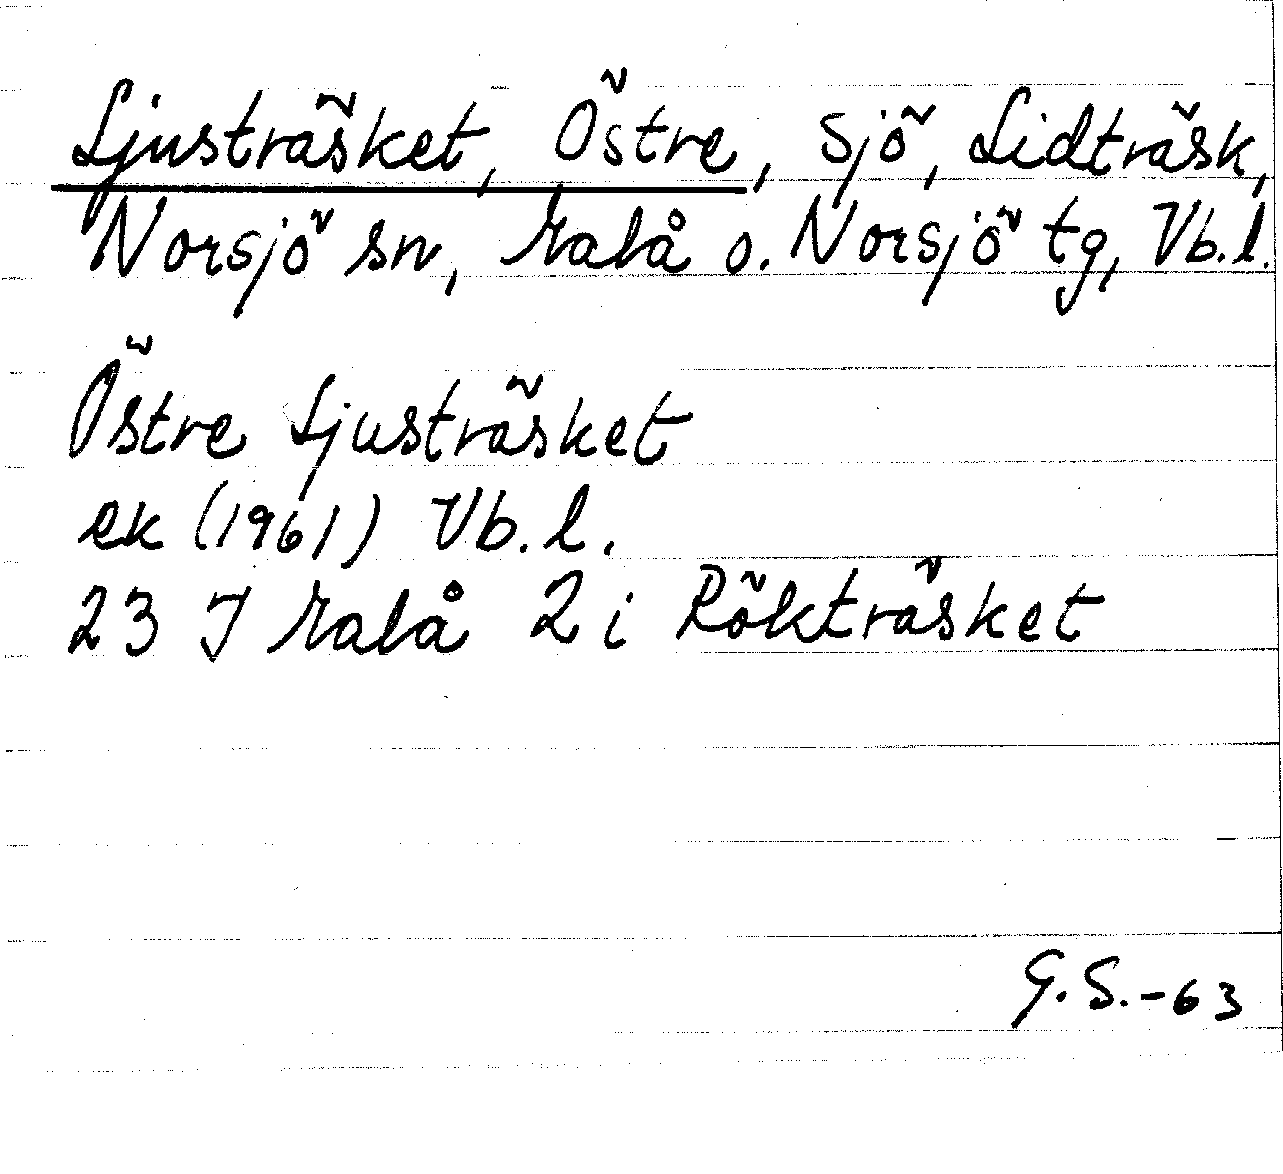 Ljusträsket, Östre, sjö, Lidträsk,
Norsjö sn, Malå o. Norsjö tg, Vb.l.
Östre Ljusträsket
ek (1961) Vb.l.
23 J Malå 2 i Rökträsket
G.S.-63